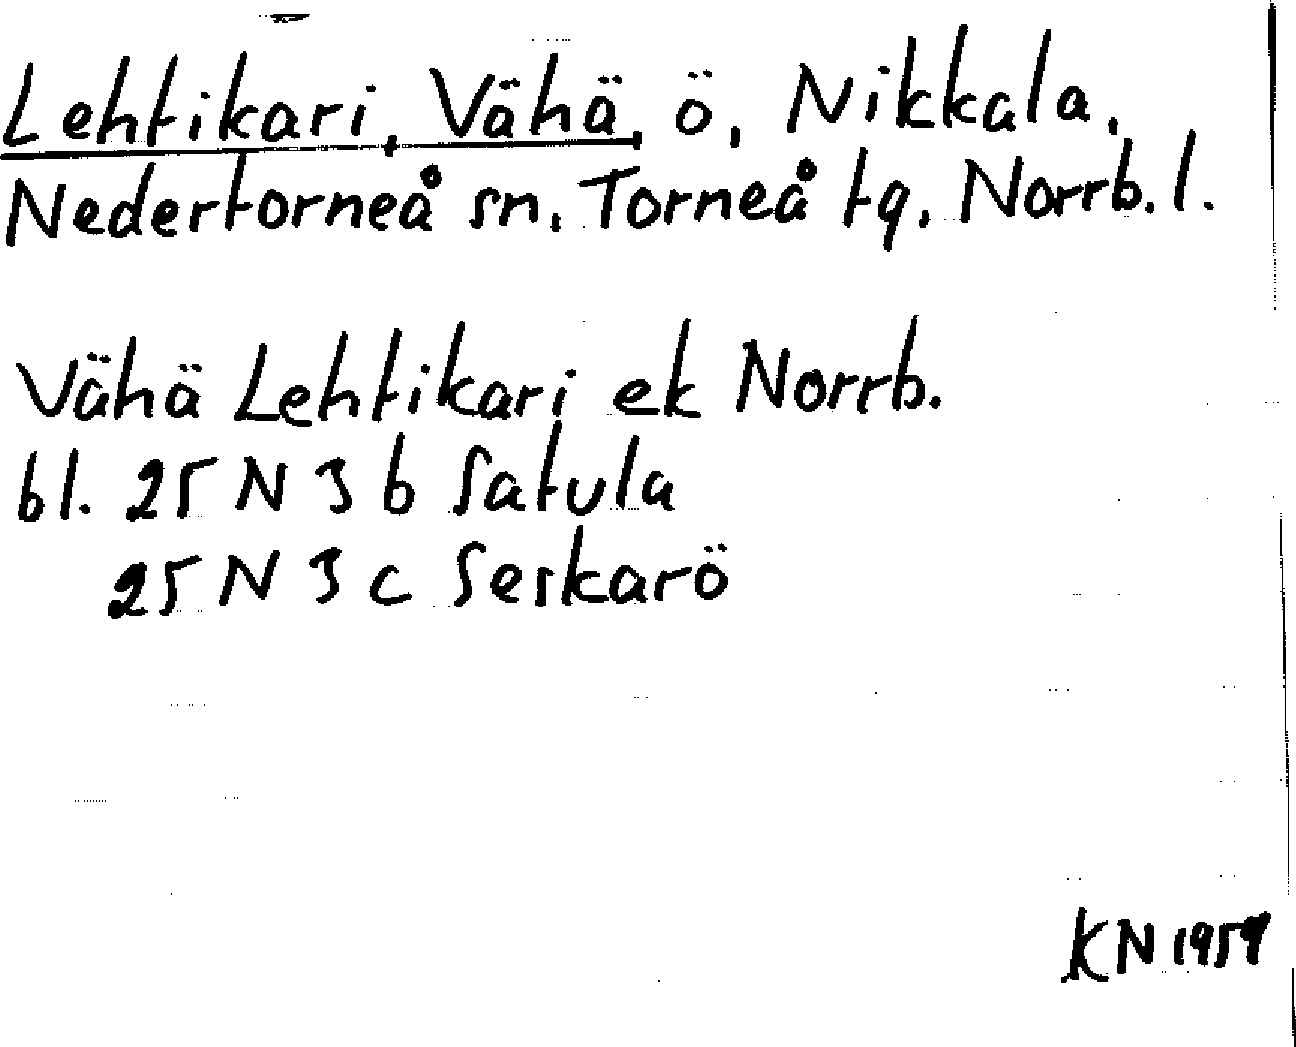 Lehtikari, Vähä, ö, Nikkala,
Nedertorneå sn, Torneå tg, Norrb. l.
Vähä Lehtikari ek Norrb.
bl. 25 N 3 b Satula
25 N 3 c Seskarö
KN